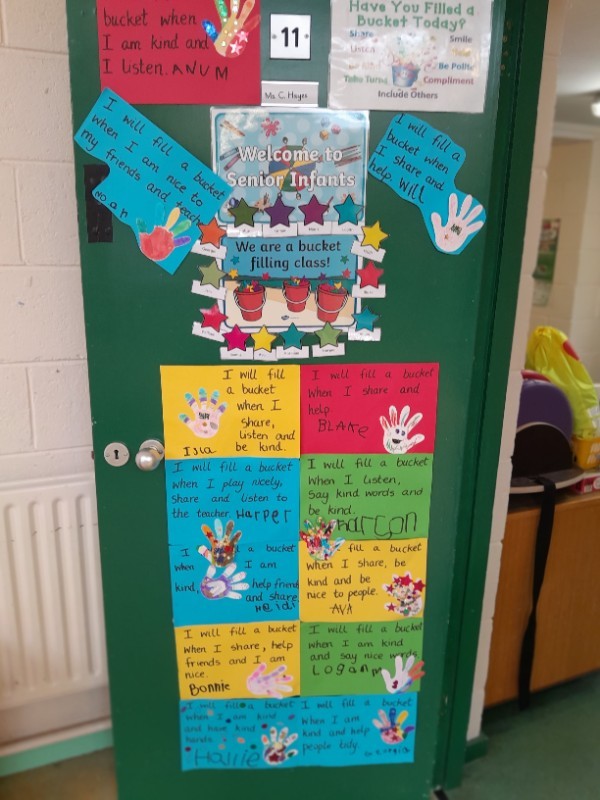 bucket when
I am kind and
I listen. ANUM
11
Ms C. Hayes
Have You Filled a
Bucket Today?
Share
Smile
Listen
Help
Be Polite
Take Turns
Compliment
Include Others
I will fill a bucket
when I am nice to
my friends and
Noah
Welcome to
Senior Infants
We are a bucket
filling class!
I will fill a
bucket when
I share and
help. Will
I will fill
a bucket
when I
share,
listen and
be kind.
Isla
I will fill a bucket
when I share and
help
BLAKE
I will fill a bucket
when I play nicely,
share and listen to
the teacher. Harper
I will fill a bucket
when I listen,
say kind words and
be kind.
I a bucket
when I am
kind, help friends
and share
Heidi
fill a bucket
when I share, be
kind and be
nice to people.
AVA
I will fill a bucket
when I share, help
friends and I am
nice.
Bonnie
I will fill a bucket
when I am kind
and say nice words
Logan
I will fill a bucket
when I am kind
and have kind
hands.
Hollie
I will fill a bucket
when I am
kind and help
people tidy.
Georgia